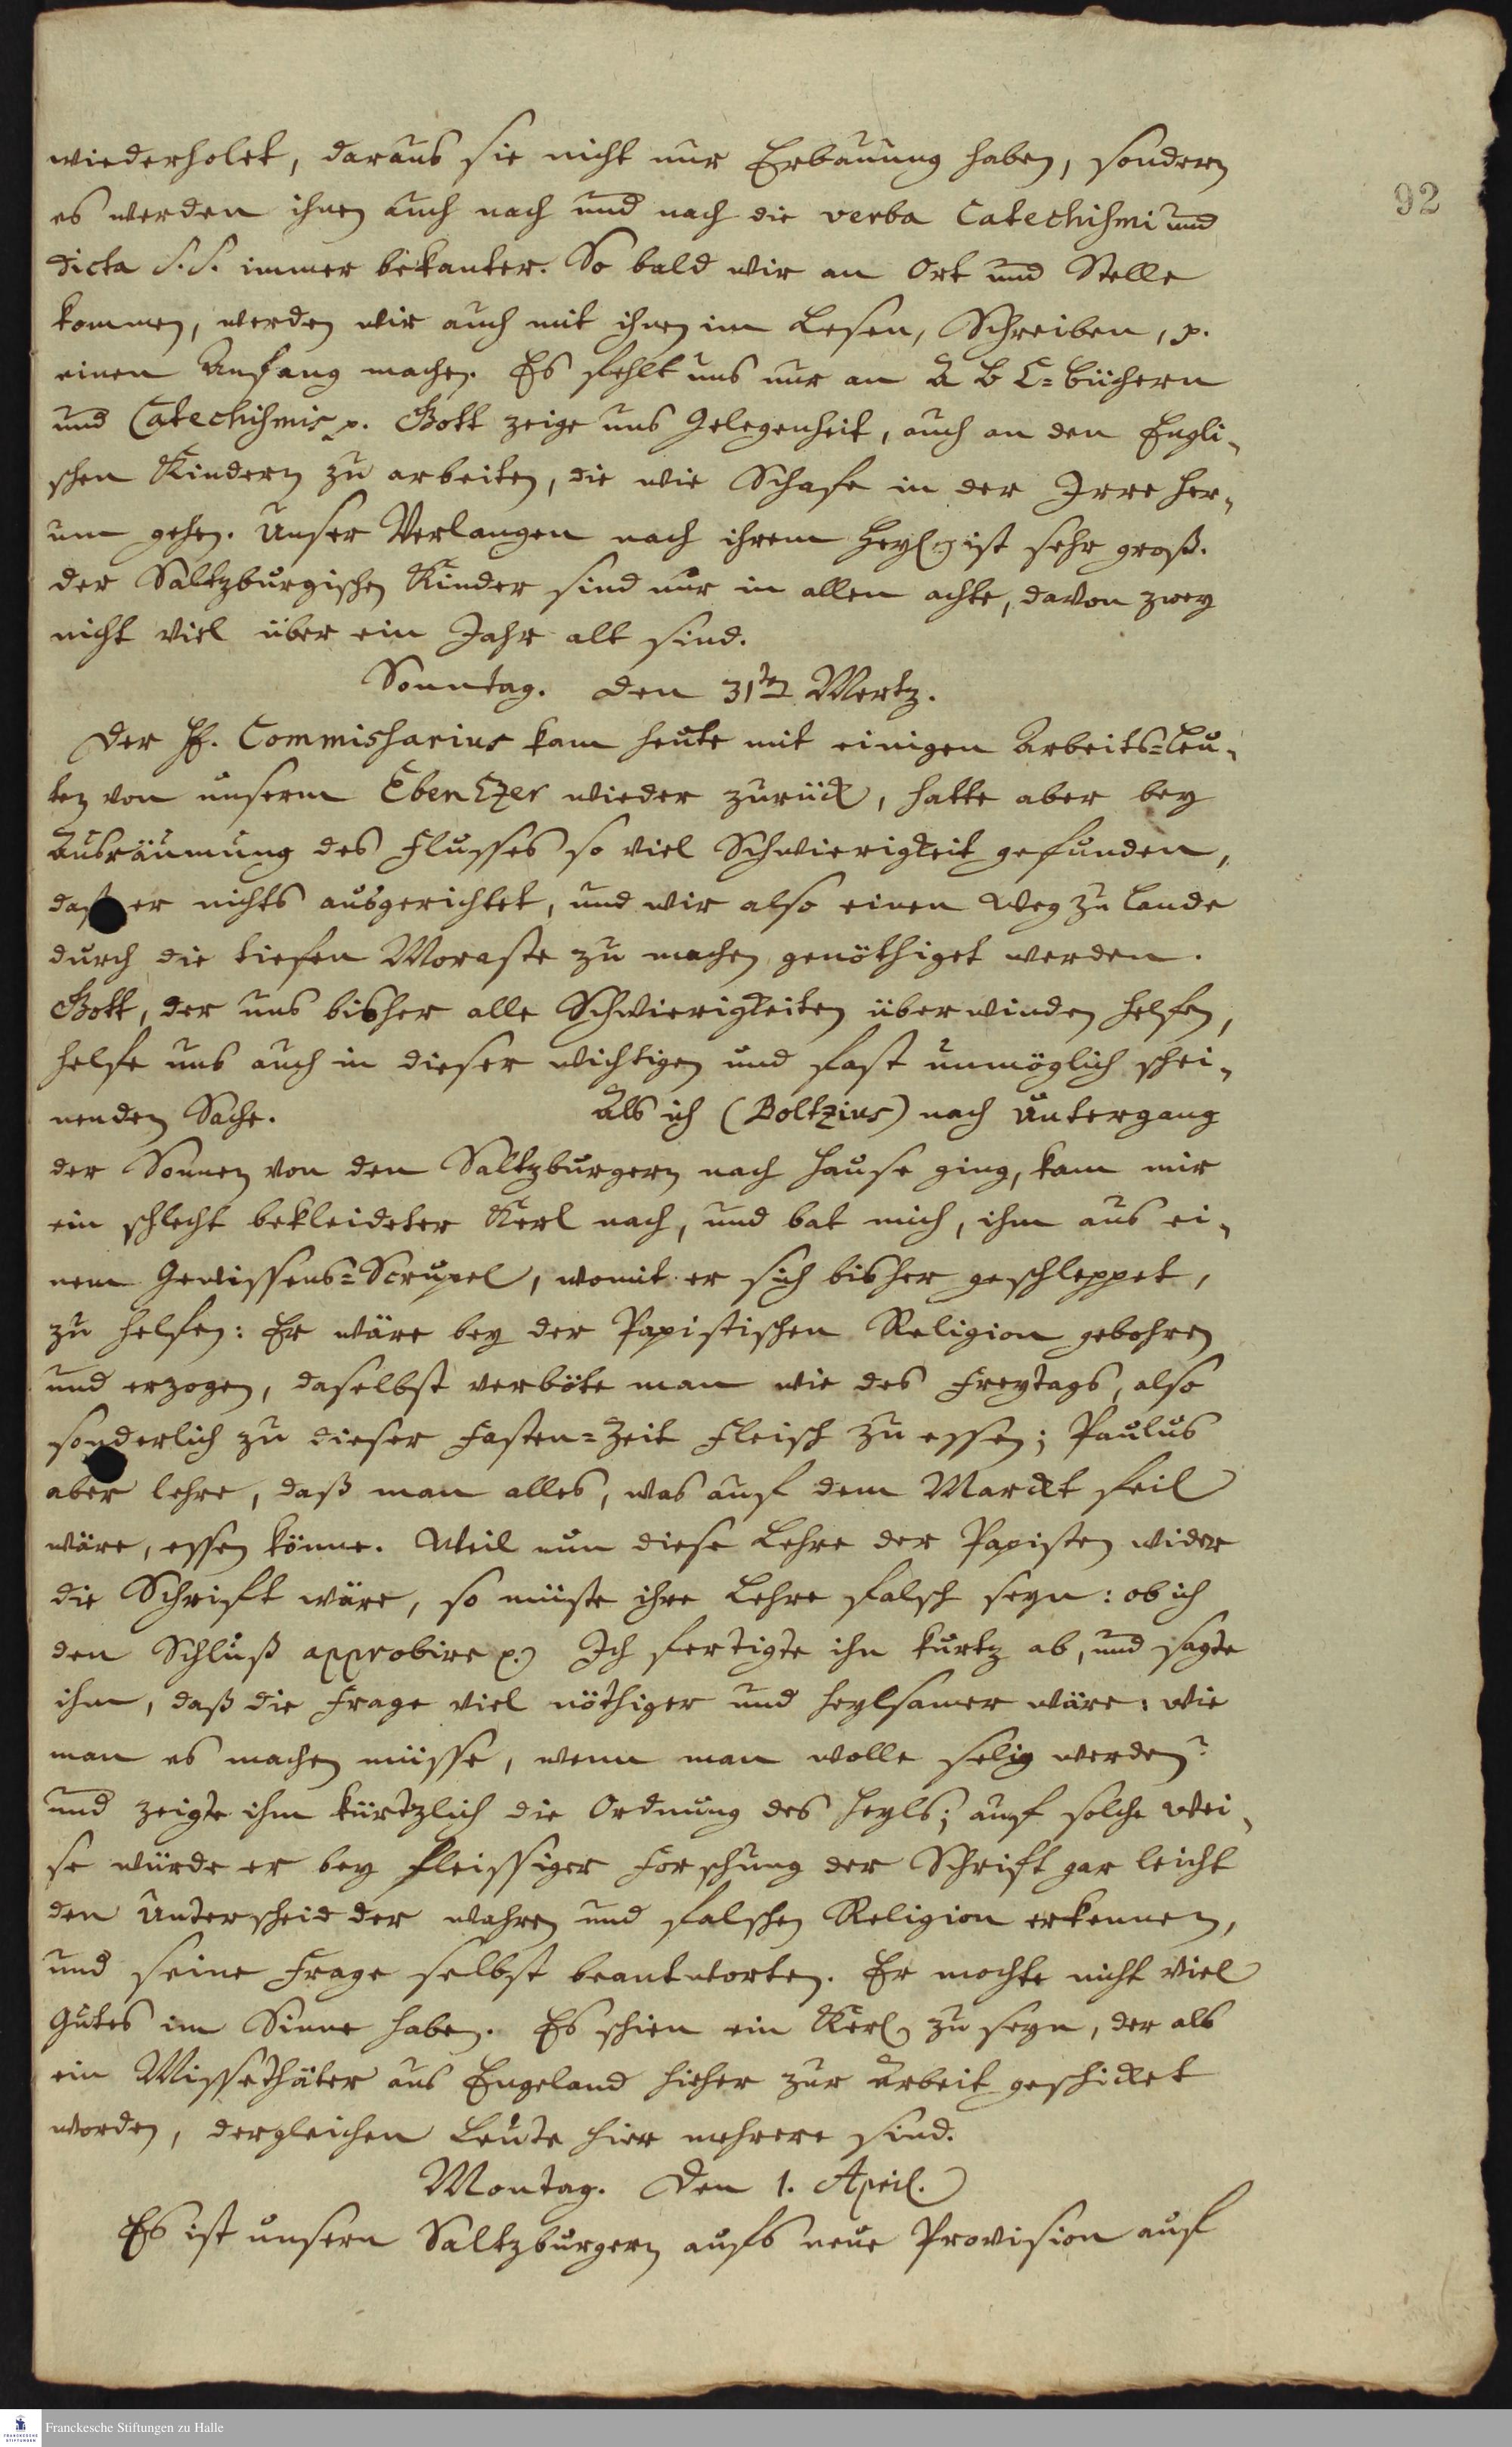 92
wiederholet, daraus sie nicht nur Erbauung haben, sondern
es werden ihnen auch nach und nach die verba Catechismi und
dicta S. S. immer bekanter. So bald wir an Ort und Stelle
kommen, werden wir auch mit ihnen im Lesen, Schreiben, p.
einen Anfang machen. Es fehlt uns nur an A B C=büchern
und Catechismis p. Gott zeige uns Gelegenheit, auch an den Engli-
schen Kindern zu arbeiten, die wie Schafe in der Irre her-
um gehen. Unser Verlangen nach ihrem Heyl ist sehr groß.
der Saltzburgischen Kinder sind nur in allen achte, davon zwey
nicht viel über ein Jahr alt sind.
Sonntag. den 31ten Mertz.
Der H. Commissarius kam heute mit einigen Arbeits=Leu-
ten von unserm EbenEzer wieder zurück, hatte aber bey
Ausräumung des Flusses so viel Schwierigkeit gefunden,
daß er nichts ausgerichtet, und wir also einen Weg zu Lande
durch die tiefen Moraste zu machen genöthiget werden.
Gott, der uns bisher alle Schwierigkeiten überwinden helfen,
helfe uns auch in dieser wichtigen und fast unmöglich schei-
nenden Sache. Als ich (Boltzius) nach Untergang
der Sonnen von den Saltzburgern nach Hause ging, kam mir
ein schlecht bekleideter Kerl nach, und bat mich, ihm aus ei-
nem Gewissens=Scrupel, womit er sich bisher geschleppet,
zu helfen: Er wäre bey der Papistischen Religion gebohren
und erzogen, daselbst verböte man wie des Freytags, also
sonderlich zu dieser Fasten=Zeit Fleisch zu essen; Paulus
aber lehre, daß man alles, was auf dem Marckt feil
wäre, essen könne. Weil nun diese Lehre der Papisten wider
die Schrift wäre, so müste ihre Lehre falsch seyn: ob ich
den Schluß approbire p.) Ich fertigte ihn kurtz ab, und sagte
ihm, daß die Frage viel nöthiger und heylsamer wäre: wie
man es machen müsse, wenn man wolle selig werden?
und zeigte ihm kürtzlich die Ordnung des Heyls; auf solche Wei-
se würde er bey fleissiger Forschung der Schrift gar leicht
den Unterscheid der wahren und falschen Religion erkennen,
und seine Frage selbst beantworten. Er mochte nicht viel
Gutes im Sinne haben. Es schien ein Kerl zu seyn, der als
ein Missethäter aus Engeland hieher zur Arbeit geschicket
worden, dergleichen Leute hier mehrere sind.
Montag. Den 1. April.
Es ist unsern Saltzburgern aufs neue Provision auf
Franckesche Stiftungen zu Halle
FRANCKESCHE STIFTUNGEN